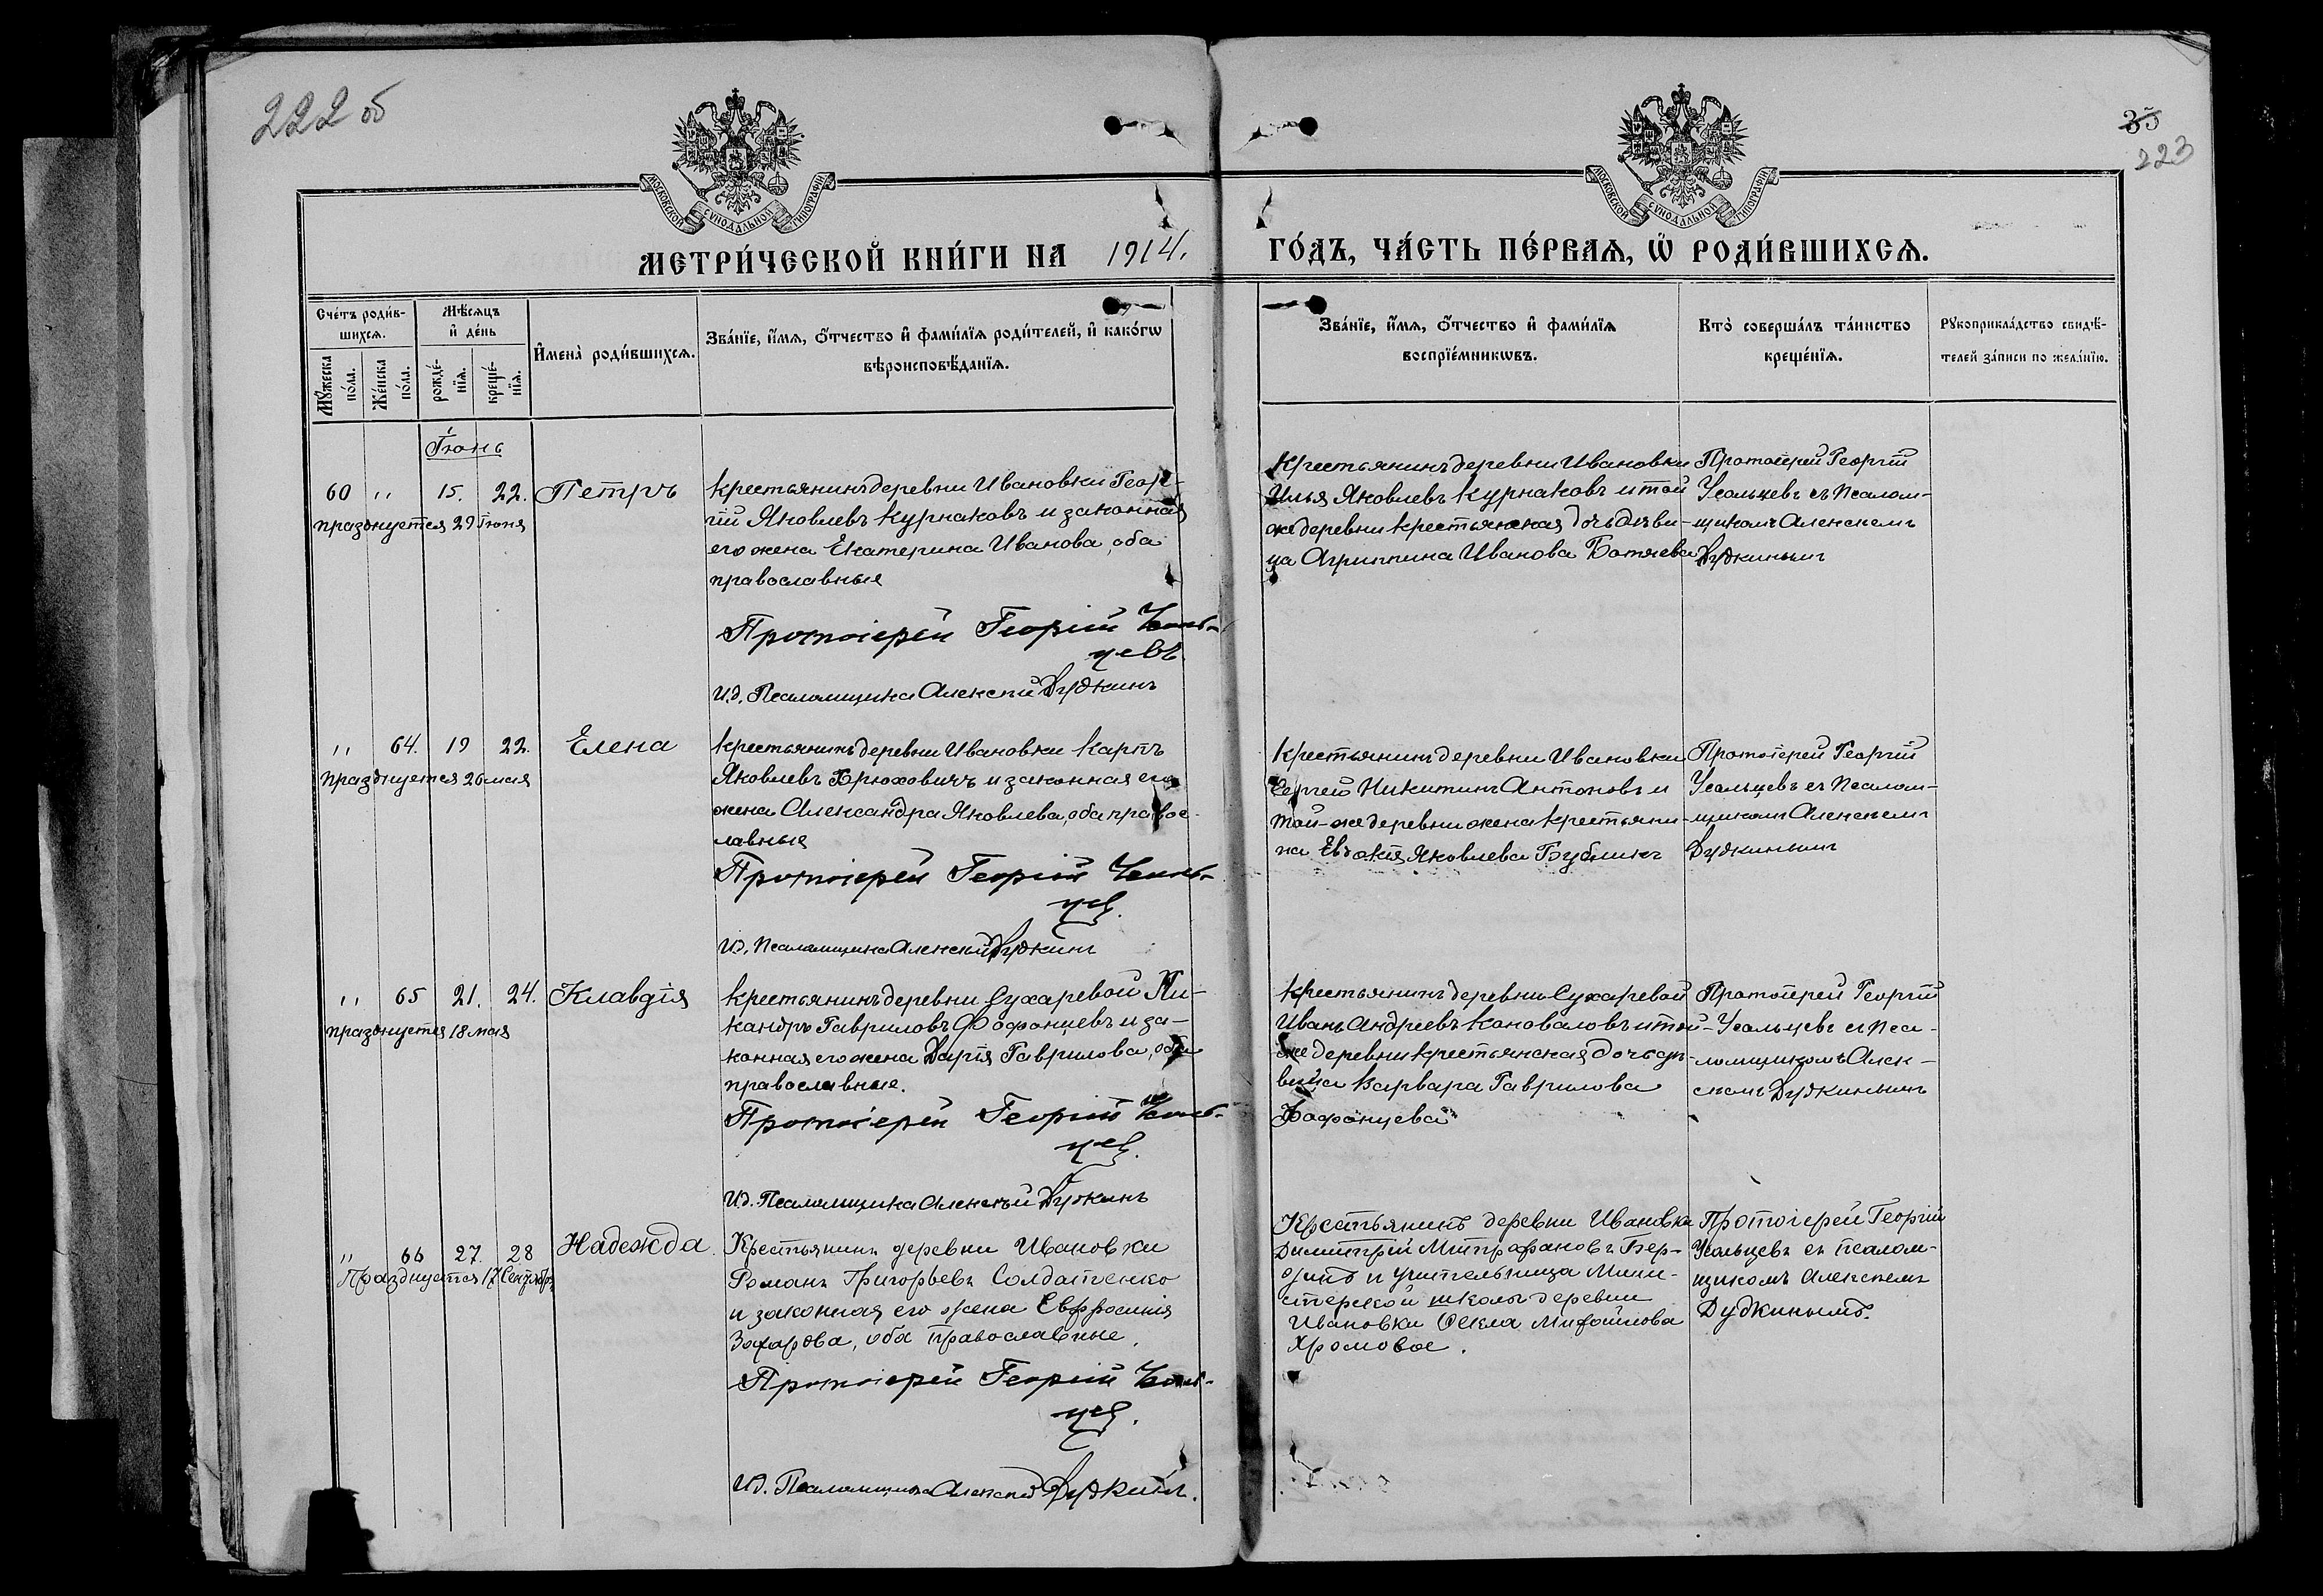 222 об
35
223
МОСКОВСКОЙ СѴНОДАЛЬНОЙ ТИПОГРАФІИ
МОСКОВСКОЙ СѴНОДАЛЬНОЙ ТИПОГРАФІИ
МЕТРИ́ЧЕСКОЙ КНИ́ГИ НА 1914. ГО́ДЪ, ЧА́СТЬ ПЕ́РВАѦ, Ѡ҆ РОДИ́ВШИХСѦ.
Сче́тъ роди́в-
шихсѧ.
Мꙋ́жеска
по́ла.
Же́нска
по́ла.
Мѣ́сѧцъ
и҆ де́нь
рожде́-
нїѧ.
креще́-
нїѧ.
И҆мена̀ роди́вшихсѧ.
Зва́нїе, и҆́мѧ, ѻ҆́тчество и҆ фами́лїѧ роди́телей, и҆ како́гѡ
вѣроисповѣ́данїѧ.
Зва́нїе, и҆́мѧ, ѻ҆́тчество и҆ фами́лїѧ
воспрїе́мникѡвъ.
Кто̀ соверша́лъ та́инство
креще́нїѧ.
Рꙋкоприкла́дство свидѣ́-
телей за́писи по жела́нїю.
Іюнь
60 " 15. 22. Петръ
празднуется 29 Іюня
Крестьянинъ деревни Ивановки Геор-
гій Яковлевъ Курнаковъ и законная
его жена Екатерина Иванова, оба
православные
Протоіерей Георгій Усоль-
цевъ.
И.д. Псаломщика Алексѣй Дудкинъ
Крестьянинъ деревни Ивановки
Илья Яковлевъ Курнаковъ и той
же деревни крестьянская дочь дѣви-
ца Агриппина Иванова Ботяева
Протоіерей Георгій
Усольцевъ съ Псалом-
щикомъ Алексѣемъ
Дудкинымъ
" 64. 19 22. Елена
празднуется 26 мая
Крестьянинъ деревни Ивановки Карпъ
Яковлевъ Хрюховичъ и законная его
жена Александра Яковлева, оба право-
лавные
Протоіерей Георгій Усоль-
цевъ.
И.д. Псаломщика Алексѣй Дудкинъ
Крестьянинъ деревни Ивановки
Сергей Никитинъ Антоновъ и
той-же деревни жена крестьяни-
на Евдокія Яковлева Бубликъ
Протоіерей Георгій
Усольцевъ съ Псалом-
щикомъ Алексѣемъ
Дудкинымъ
" 65 21. 24. Клавдія
празднуется 18 мая
Крестьянинъ деревни Сухаревой Ни-
кандръ Гавриловъ Фофонцевъ и за-
конная его жена Дарія Гаврилова, оба
православные.
Протоіерей Георгій Усоль-
цевъ.
И.д. Псаломщика Алексѣй Дудкинъ
Крестьянинъ деревни Сухаревой
Иванъ Андреевъ Коноваловъ и той-
же деревни крестьянская дочь дѣ-
вица Варвара Гаврилова
Фофонцева
Протоіерей Георгій
Усольцевъ съ Пса-
ломщикомъ Алек-
сѣемъ Дудкинымъ
" 66 27. 28 Надежда.
Празднуется 17 Сентября
Крестьянинъ деревни Ивановки
Романъ Григорьевъ Солдатенко
и законная его жена Евфросинія
Захарова, оба православные.
Протоіерей Георгій Усоль-
цевъ.
И.д. Псаломщика Алексѣй Дудкинъ.
Крестьянинъ деревни Ивановки
Димитрій Митрофановъ
и учительница Мини-
стерской школы деревни
Ивановки Ѳекла Михайлова
Хромовое.
Протоіерей Георгій
Усольцевъ съ псалом-
щикомъ Алексѣемъ
Дудкинымъ.